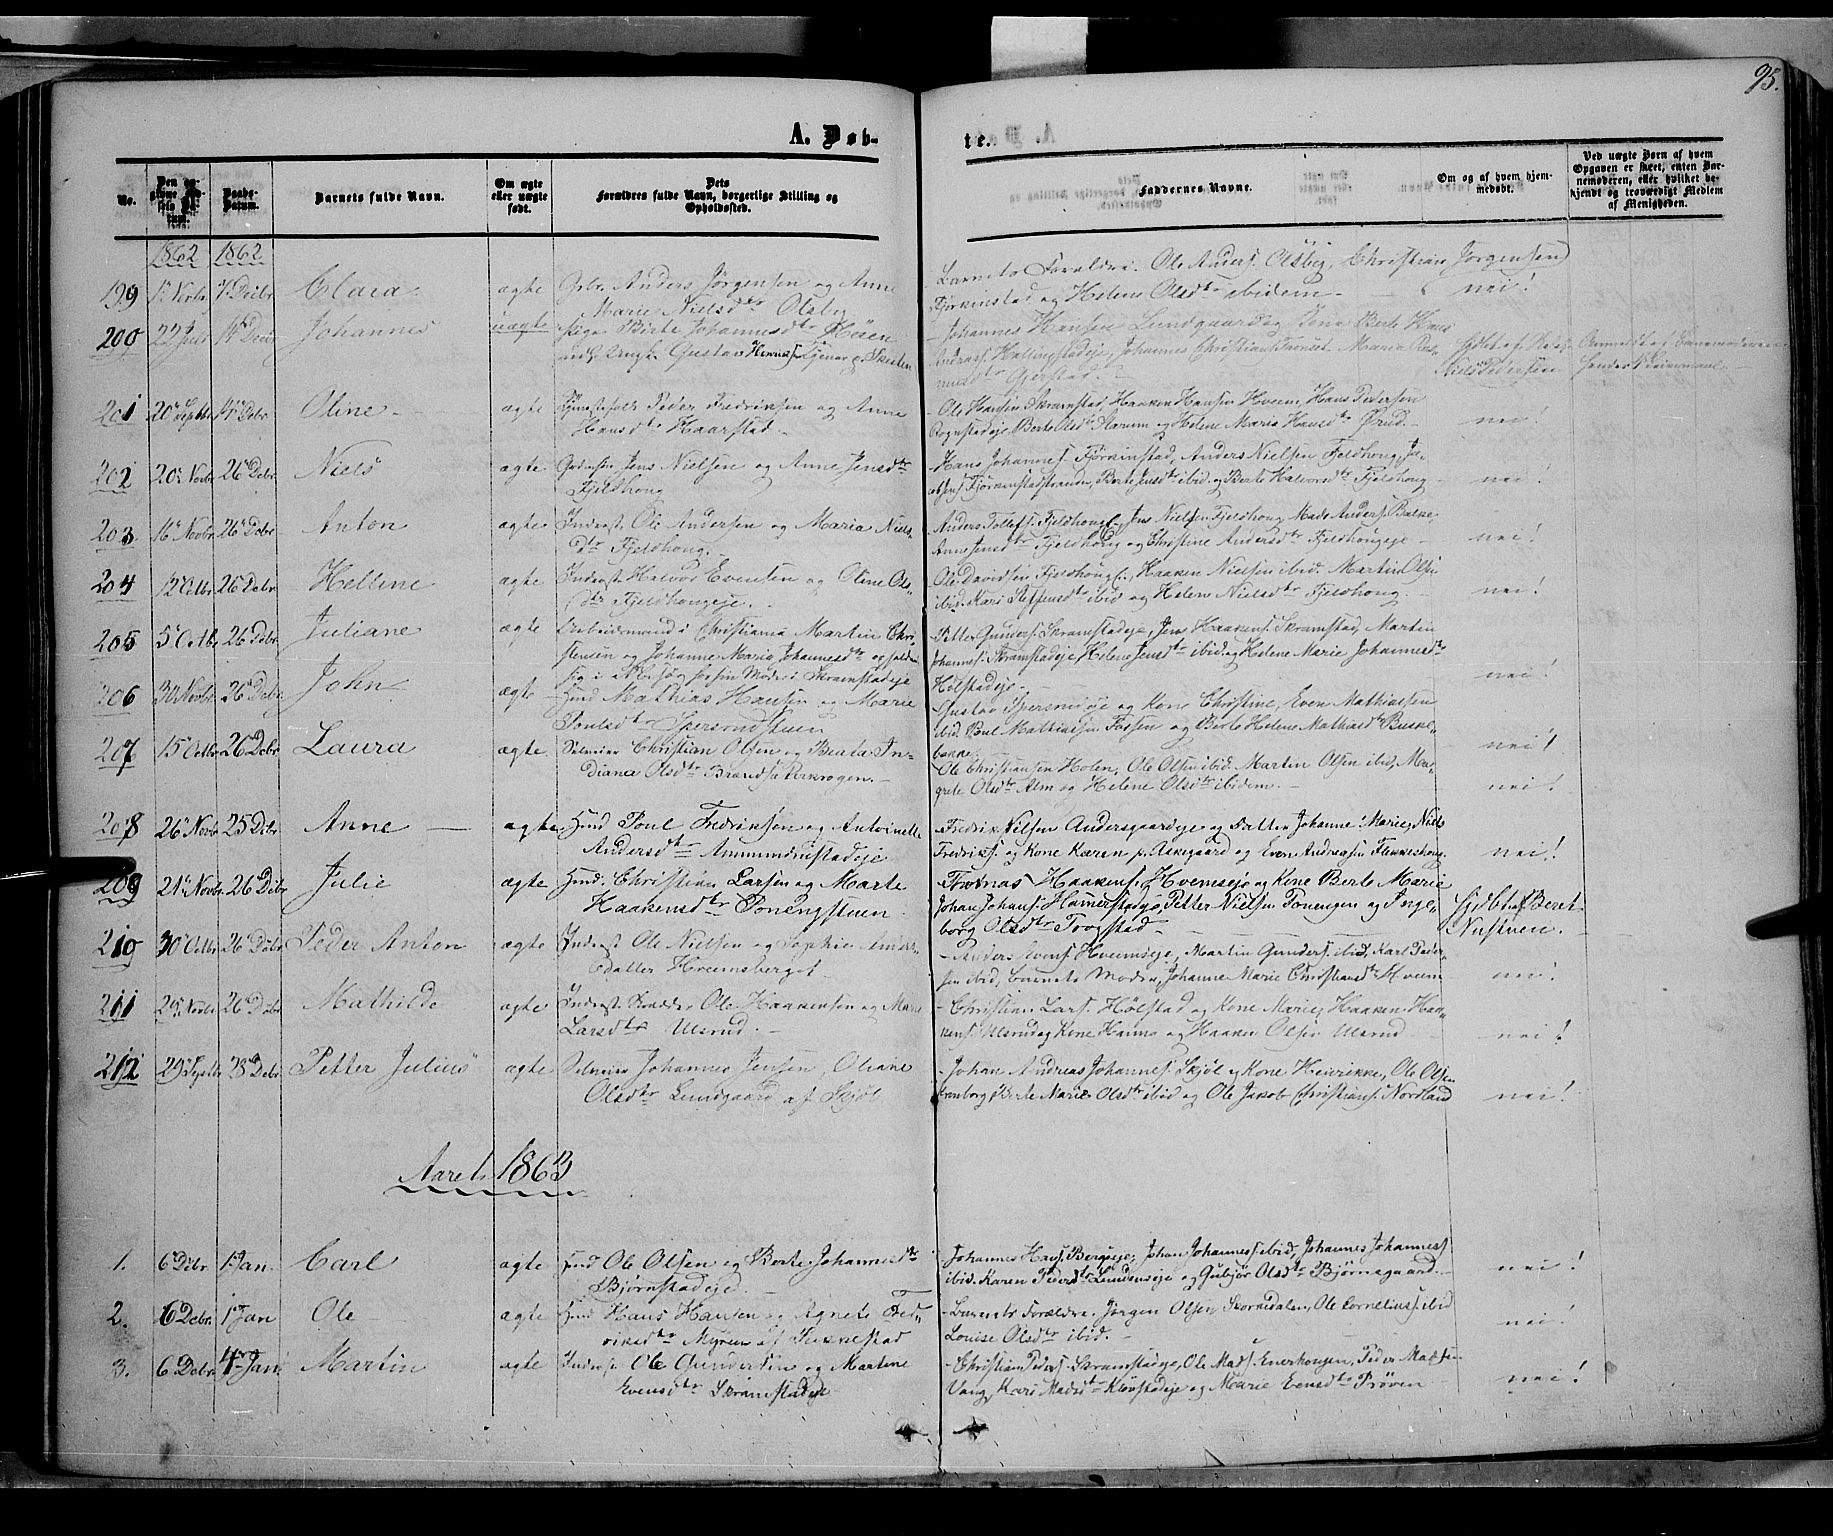 95.
A. Døb-
te.
No.
Den op-
givne Fød-
sels Da-
tum.
Daabs-
Datum.
Barnets fulde Navn.
Om ægte
eller uægte
født.
Dets
Forældres fulde Navn, borgerlige Stilling og
Opholdssted.
Faddernes Navne.
Om og af hvem hjem-
medøbt.
Ved uægte Børn af hvem
Opgaven er skeet, enten Bar-
nemoderen, eller hvilket be-
kjendt og troværdigt Medlem
af Menigheden.
1862 1862
199 1ste Novbr 7de Decbr Clara ægte Grbr. Anders Jørgensen og Anne
Marie Nielsdtr Olsby
Barnets Forældre. Ole Anders. Olsby, Christian Jørgensen
Fjørkenstad og Helene Olsdtr ibidem. nei!
200 22 Juli 14 Decbr Johannes uægte Pige Birte Johannesdtr Høien
Gustav Hennings. Tjener p. Skusten
Johannes Hansen Lundgaard og Kone Berte Hans
Andreas Hallingstadeje, Johannes Christians. Tronset. Maria Ras-
musdtr Gjerstad.
Niels Pedersen
201 20 Septbr 14 Debr. Oline ægte Tjenestefolk Peder Fredriksen og Anne
Hansdtr Haarstad.
Ole Hansen Skramstad, Haaken Hansen Hveem, Hans Pedersen
Rognstadeje, Berte Olsdtr Narum og Helene Maria Hansdtr Ørud. nei!
202 20de Novbr 26 Debr. Niels ægte Gaardm. Jens Nielsen og Anne Jensdtr
Fjeldhong
Hans Johannes. Fjørkenstad, Anders Nielsen Fjeldhong, Ja-
cob Jens. Fjørkenstadstranden, Berte Jensdtr ibid. og Berte Halvorsdtr Fjeldhong nei!
203 16 Novbr 26 Debr. Anton ægte Inderst. Ole Andersen og Maria Niels-
dtr Fjeldhong.
Anders Tollefs. Fjeldhong, Jens Nielsen Fjeldhong, Mads Anders. Balke,
Anne Jensdtr Fjeldhong og Christine Andersdtr Fjeldhongeje nei!
204 12 Octbr. 26 Debr Helline ægte Inderst Halvor Evensen og Oline Ols-
dtr Fjeldhongeje.
Ole Davidsen Fjeldhong, Haaken Nielsen ibid. Martin Olsen
ibid. Kari Steffensdtr ibid og Helene Nielsdtr Fjeldhong. nei!
205 5 Octbr 26 Debr. Juliane ægte Arbeidsmand i Christiania Martin Chri-
stensen og Johanne Marie Johannesdtr opholder
sig i Besøg hos sin Moder i Skramstadeje
Petter Gunders. Skramstadeje, Jens Haakens. Skramstad, Martin
Johannes. Skramstadeje, Helene Jensdtr ibid. og Helene Marie Johannesdtr
Hølstadeje. nei!
206 30 Novbr. 26 Debr. John ægte Hmd Mathias Hansen og Marie
Poulsdtr Spersrudstuen
Gustav Spersrudeje og Kone Christine, Even Mathiassen
ibid. Poul Mathiassen Fossen og Berte Helene Mathiasdtr Buske-
bakke. nei!
207 15 Octbr. 26 Debr Laura ægte Selveier Christian Olsen og Beate In-
diana Olsdtr
Ole Christiansen Holen, Ole Olsen ibid. Martin Olsen ibid, Mar-
grete Olsdtr Alm og Helene Olsdtr ibidem. nei!
208 26 Novbr. 25 Debr Anne ægte Hmd Poul Fredriksen og Antoinette
Andersdtr Ammundrustadeje
Fredrik Nilsen Andersgaardeje og Datter Johanne Marie, Niels
Fredriks. og Kone Karen p. Askegaard og Even Andreasen Flekkeshong. nei!
209 21de Novbr. 26 Debr Julie ægte Hmd. Christian Larsen og Marte
Haakensdtr Ponengstuen
Thomas Haakens. Hveemseje og Kone Berte Marie
Johan Johans. Hamerstadeje, Petter Nielsen Ponengen og Inge-
borg Olsdtr Trogstad. Hjdbt af Beret
Nustuen.
210 30 Octbr 26 Debr Peder Anton ægte Inderst Ole Nielsen og Sophie Anders-
datter Hveemsberget
Anders Evens. Hveemseje, Martin Gunders. ibid, Karl Peder-
sen ibid, Barnets Moder, Johanne Marie Christiansdtr Hveem nei!
211 29 Novbr. 26 Debr Mathilde ægte Inderst Skrædder Ole Haakensen og Marie
Larsdtr Ulsrud.
Christian Lars. Hølstad og Kone Marie, Haaken Haa-
kens. Ulsrud og Kone Hanna og Haaken Olsen Ulsrud nei!
212 29 Septbr 28 Debr Petter Julius ægte Selveier Johannes Jensen, Oliane
Olsdtr Lundgaard af Skjøl.
Johan Andreas Johannes. Skjøl og Kone Henrikke, Ole Olsen
Kronborg, Berte Marie Olsdtr ibid og Ole Jakob Christians. Nordland nei!
Aaret 1863
1. 6 Debr. 1 Jan. Carl ægte Hmd Ole Olsen og Berte Johannesdtr
Bjørnstadeje.
Johannes Hans. Bergseje, Johan Johannes. ibid, Johannes Johannes.
ibid. Karen Pedersdtr Lundenseje og Gubjør Olsdtr Bjørnsgaard. nei!
2. 6 Debr. 1 Jan Ole ægte Hmd Hans Hansen og Agnete Fred-
riksdtr Myren af Tukkestad
Barnets Forældre. Jørgen Olsen Skornsdalen, Ole Cornelius. ibid
Louise Olsdtr ibid. nei!
3. 6 Debr. 4 Jan Martin ægte Inderst Ole Gundersen og Martine
Evensdtr Skramstadeje
Christian Peders. Skramstadeje, Ole Mads. Enerhougen, Peder Madsen
Vang, Kari Madsdtr Kløvstadeje og Marie Evensdtr Prøven nei!